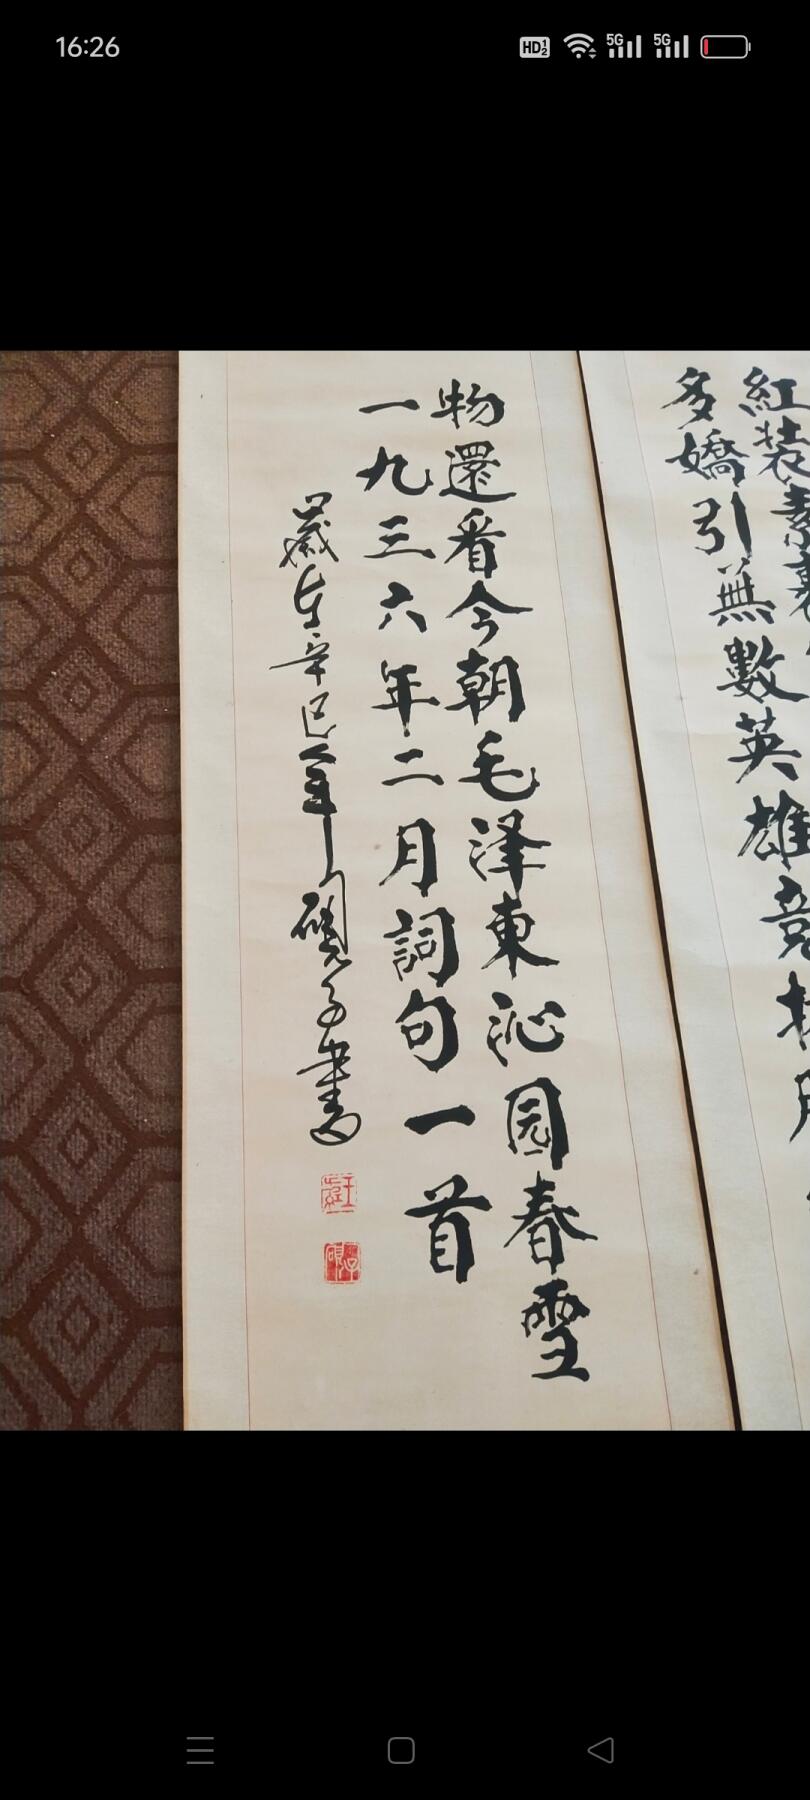 16:26
HD 1 2 5G 5G
紅装素裹
多嬌引無數英雄競
物還看今朝毛泽東沁园春雪
一九三六年二月詞句一首
歲在辛巳年硯子書